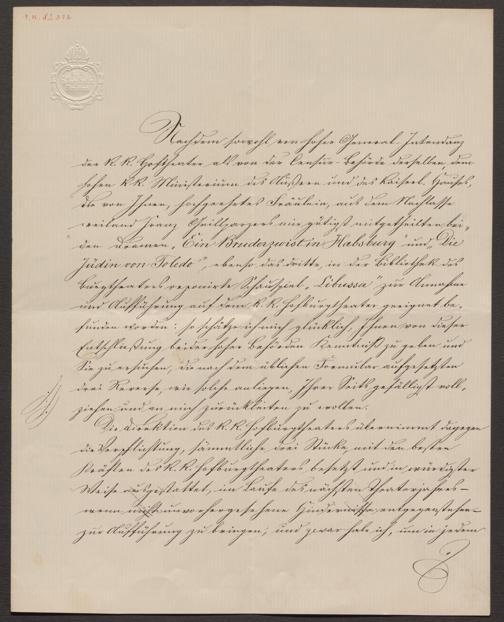 Nachdem sowohl von hoher General-Intendanz
der K. K. Hoftheater als von der Censur-Behörde derselben, dem
hohen k. k. Ministerium des Äußern und des Kaiserl. Hauses,
die von Ihnen, hochgeehrtes Fräulein, aus dem Nachlasse
weiland Franz Grillparzers mir gütigst mitgetheilten bei-
den Dramen, „Ein Bruderzwist in Habsburg" und „Die
Jüdin von Toledo", ebenso das dritte, in der Bibliothek des
Burgtheaters deponirte Schauspiel „Libussa" zur Annahme
und Aufführung auf dem k. k. Hofburgtheater geeignet be-
funden worden: so schätze ich mich glücklich, Ihnen von dieser
Entschließung beider hoher Behörden Kenntniß zu geben und
Sie zu ersuchen, die nach dem üblichen Formular aufgesetzten
drei Reverse, wie solche anliegen, Ihrer Seits gefälligst voll-
ziehen und an mich zurückleiten zu wollen.
Die Direktion des K. K. Hofburgtheaters übernimmt dagegen
die Verpflichtung, sämmtliche drei Stücke, mit den besten
Kräften des K. K. Hofburgtheaters besetzt und in würdigster
Weise ausgestattet, im Laufe des nächsten Theaterjahres –
wenn nicht unvorhergesehene Hindernisse entgegenstehen –
zur Aufführung zu bringen; und zwar habe ich, um in jedem